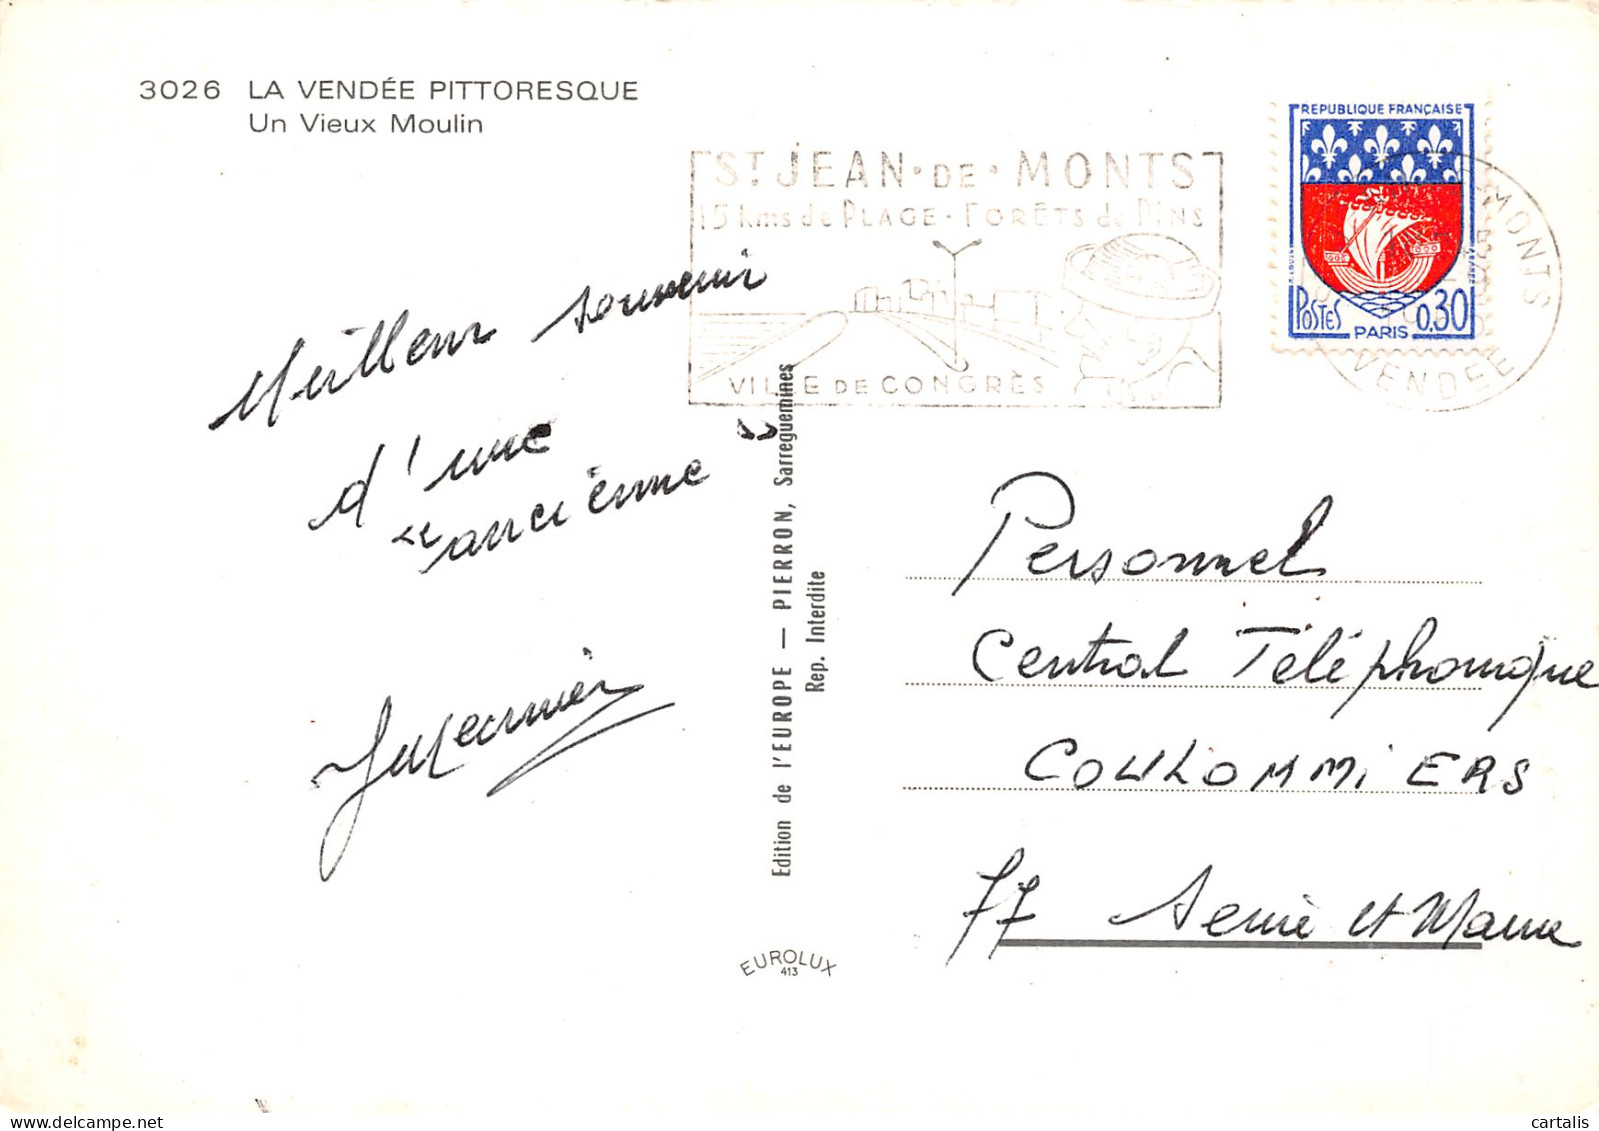 3026 LA VENDÉE PITTORESQUE
Un Vieux Moulin
ST JEAN·DE·MONTS
15 Kms de PLAGE·FORÊTS de PINS
VILLE DE CONGRÈS
REPUBLIQUE FRANÇAISE
POSTES
0,30
PARIS
MONTS
VENDEE
Meilleur souvenir
d'une
"ancienne"
Edition de l'EUROPE — PIERRON, Sarreguemines
Rep. Interdite
EUROLUX
413
Personnel
Central Téléphonique
COULOMMIERS
77 Seine et Marne
cartalis